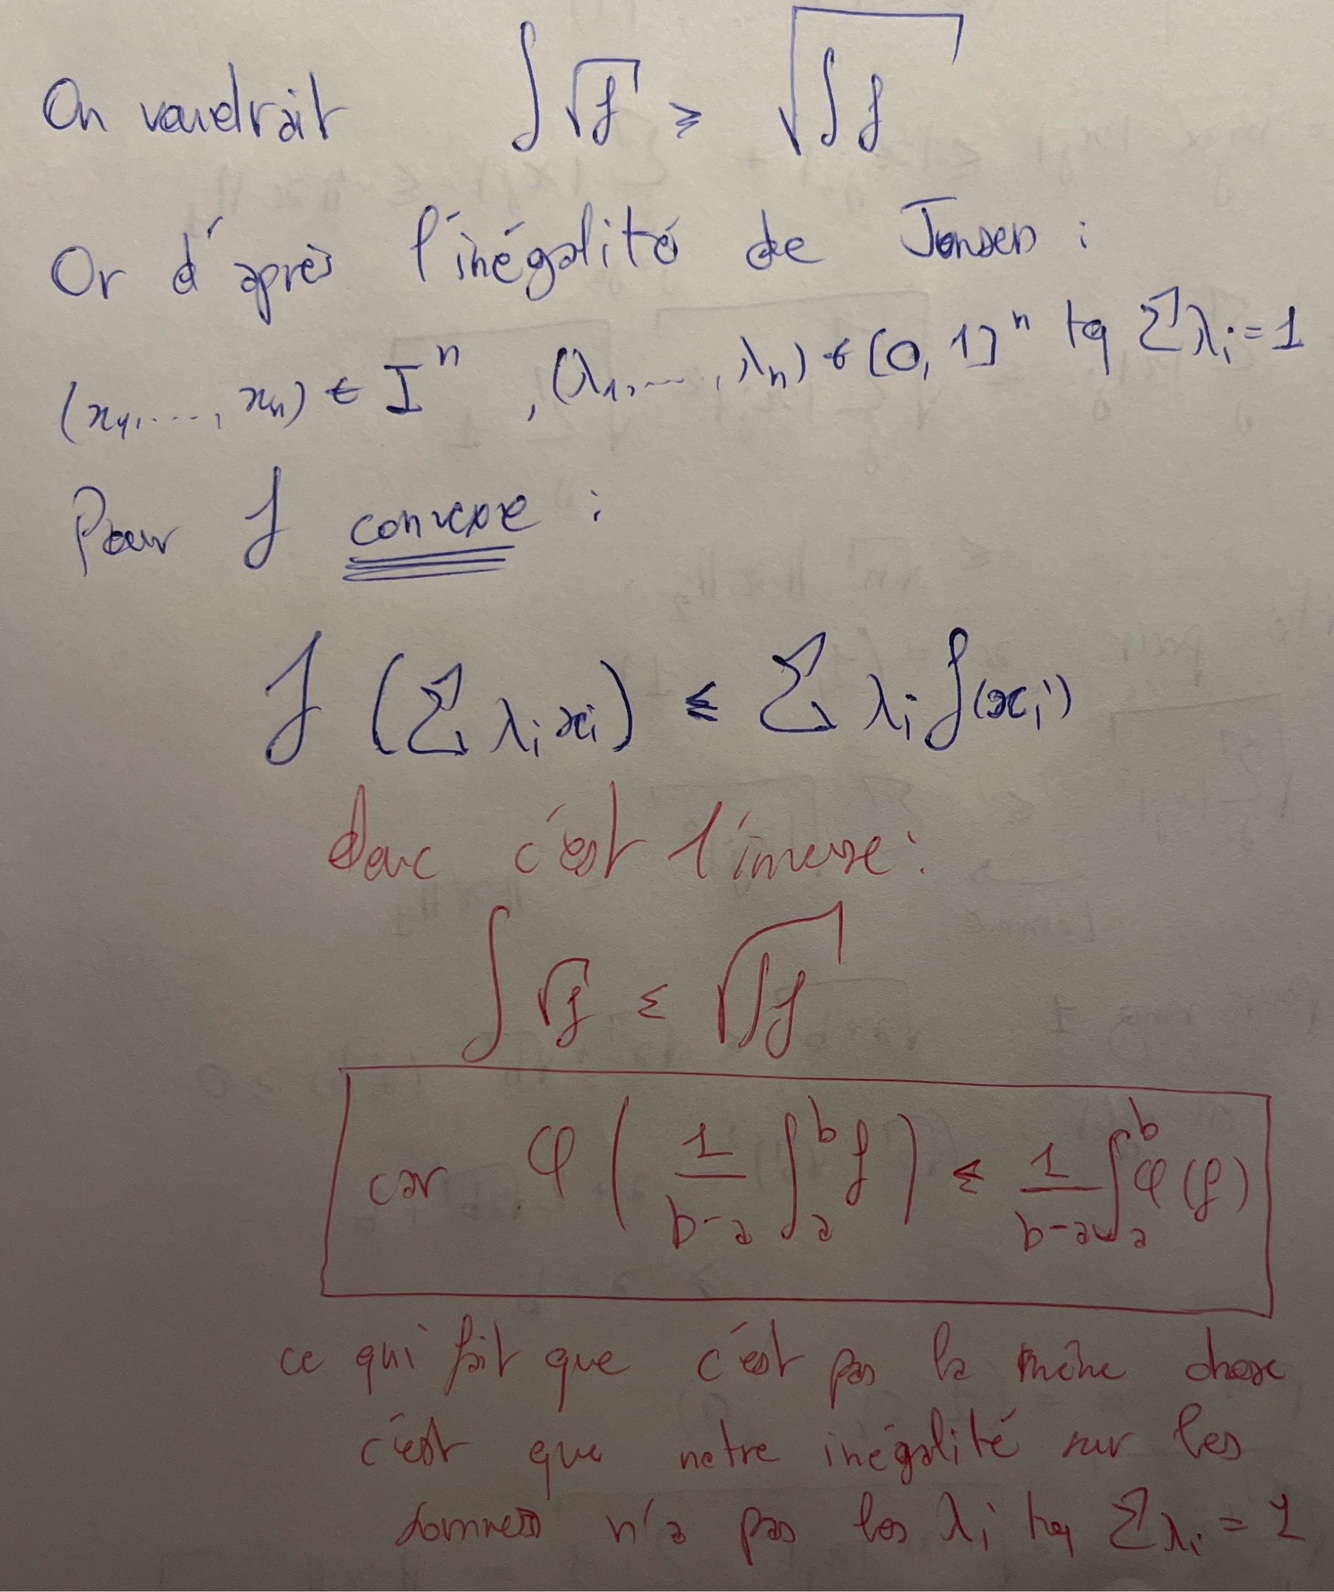 On voudrait ∫ √f ≥ √∫ f
Or d'après l'inégalité de Jensen :
(x₁, ..., xₙ) ∈ Iⁿ, (λ₁, ..., λₙ) ∈ [0, 1]ⁿ tq Σ λᵢ = 1
Pour f convexe :
f (Σ λᵢ xᵢ) ≤ Σ λᵢ f(xᵢ)
donc c'est l'inverse :
∫ √f ≤ √∫ f
car φ ( 1/(b-a) ∫ₐᵇ f ) ≤ 1/(b-a) ∫ₐᵇ φ(f)
ce qui fait que c'est pas la même chose
c'est que notre inégalité sur les
sommes n'a pas les λᵢ tq Σ λᵢ = 1